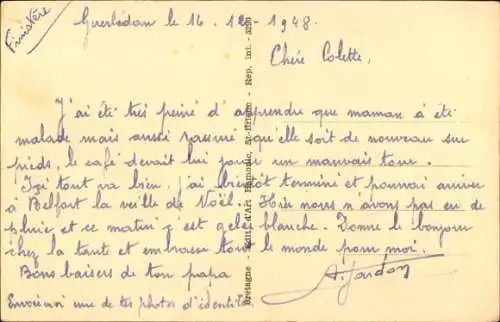 Finistère
Guerlédan le 16. 12 - 1948.
Chère Colette,
J'ai été très peiné d'apprendre que maman a été
malade mais aussi rassuré qu'elle soit de nouveau sur
pieds, le café devait lui jouer un mauvais tour.
Ici tout va bien. j'ai bientôt terminé et pourrai arriver
à Belfort la veille de Noël. Hier nous n'avons pas eu de
pluie et ce matin c'est gelée blanche. Donne le bonjour
chez la tante et embrasse tout le monde pour moi.
Bons baisers de ton papa
A. Jardon
Envoie moi une de tes photos d'identité.
Bretagne - Edit. d'Art St-Brieuc - Rep. int.